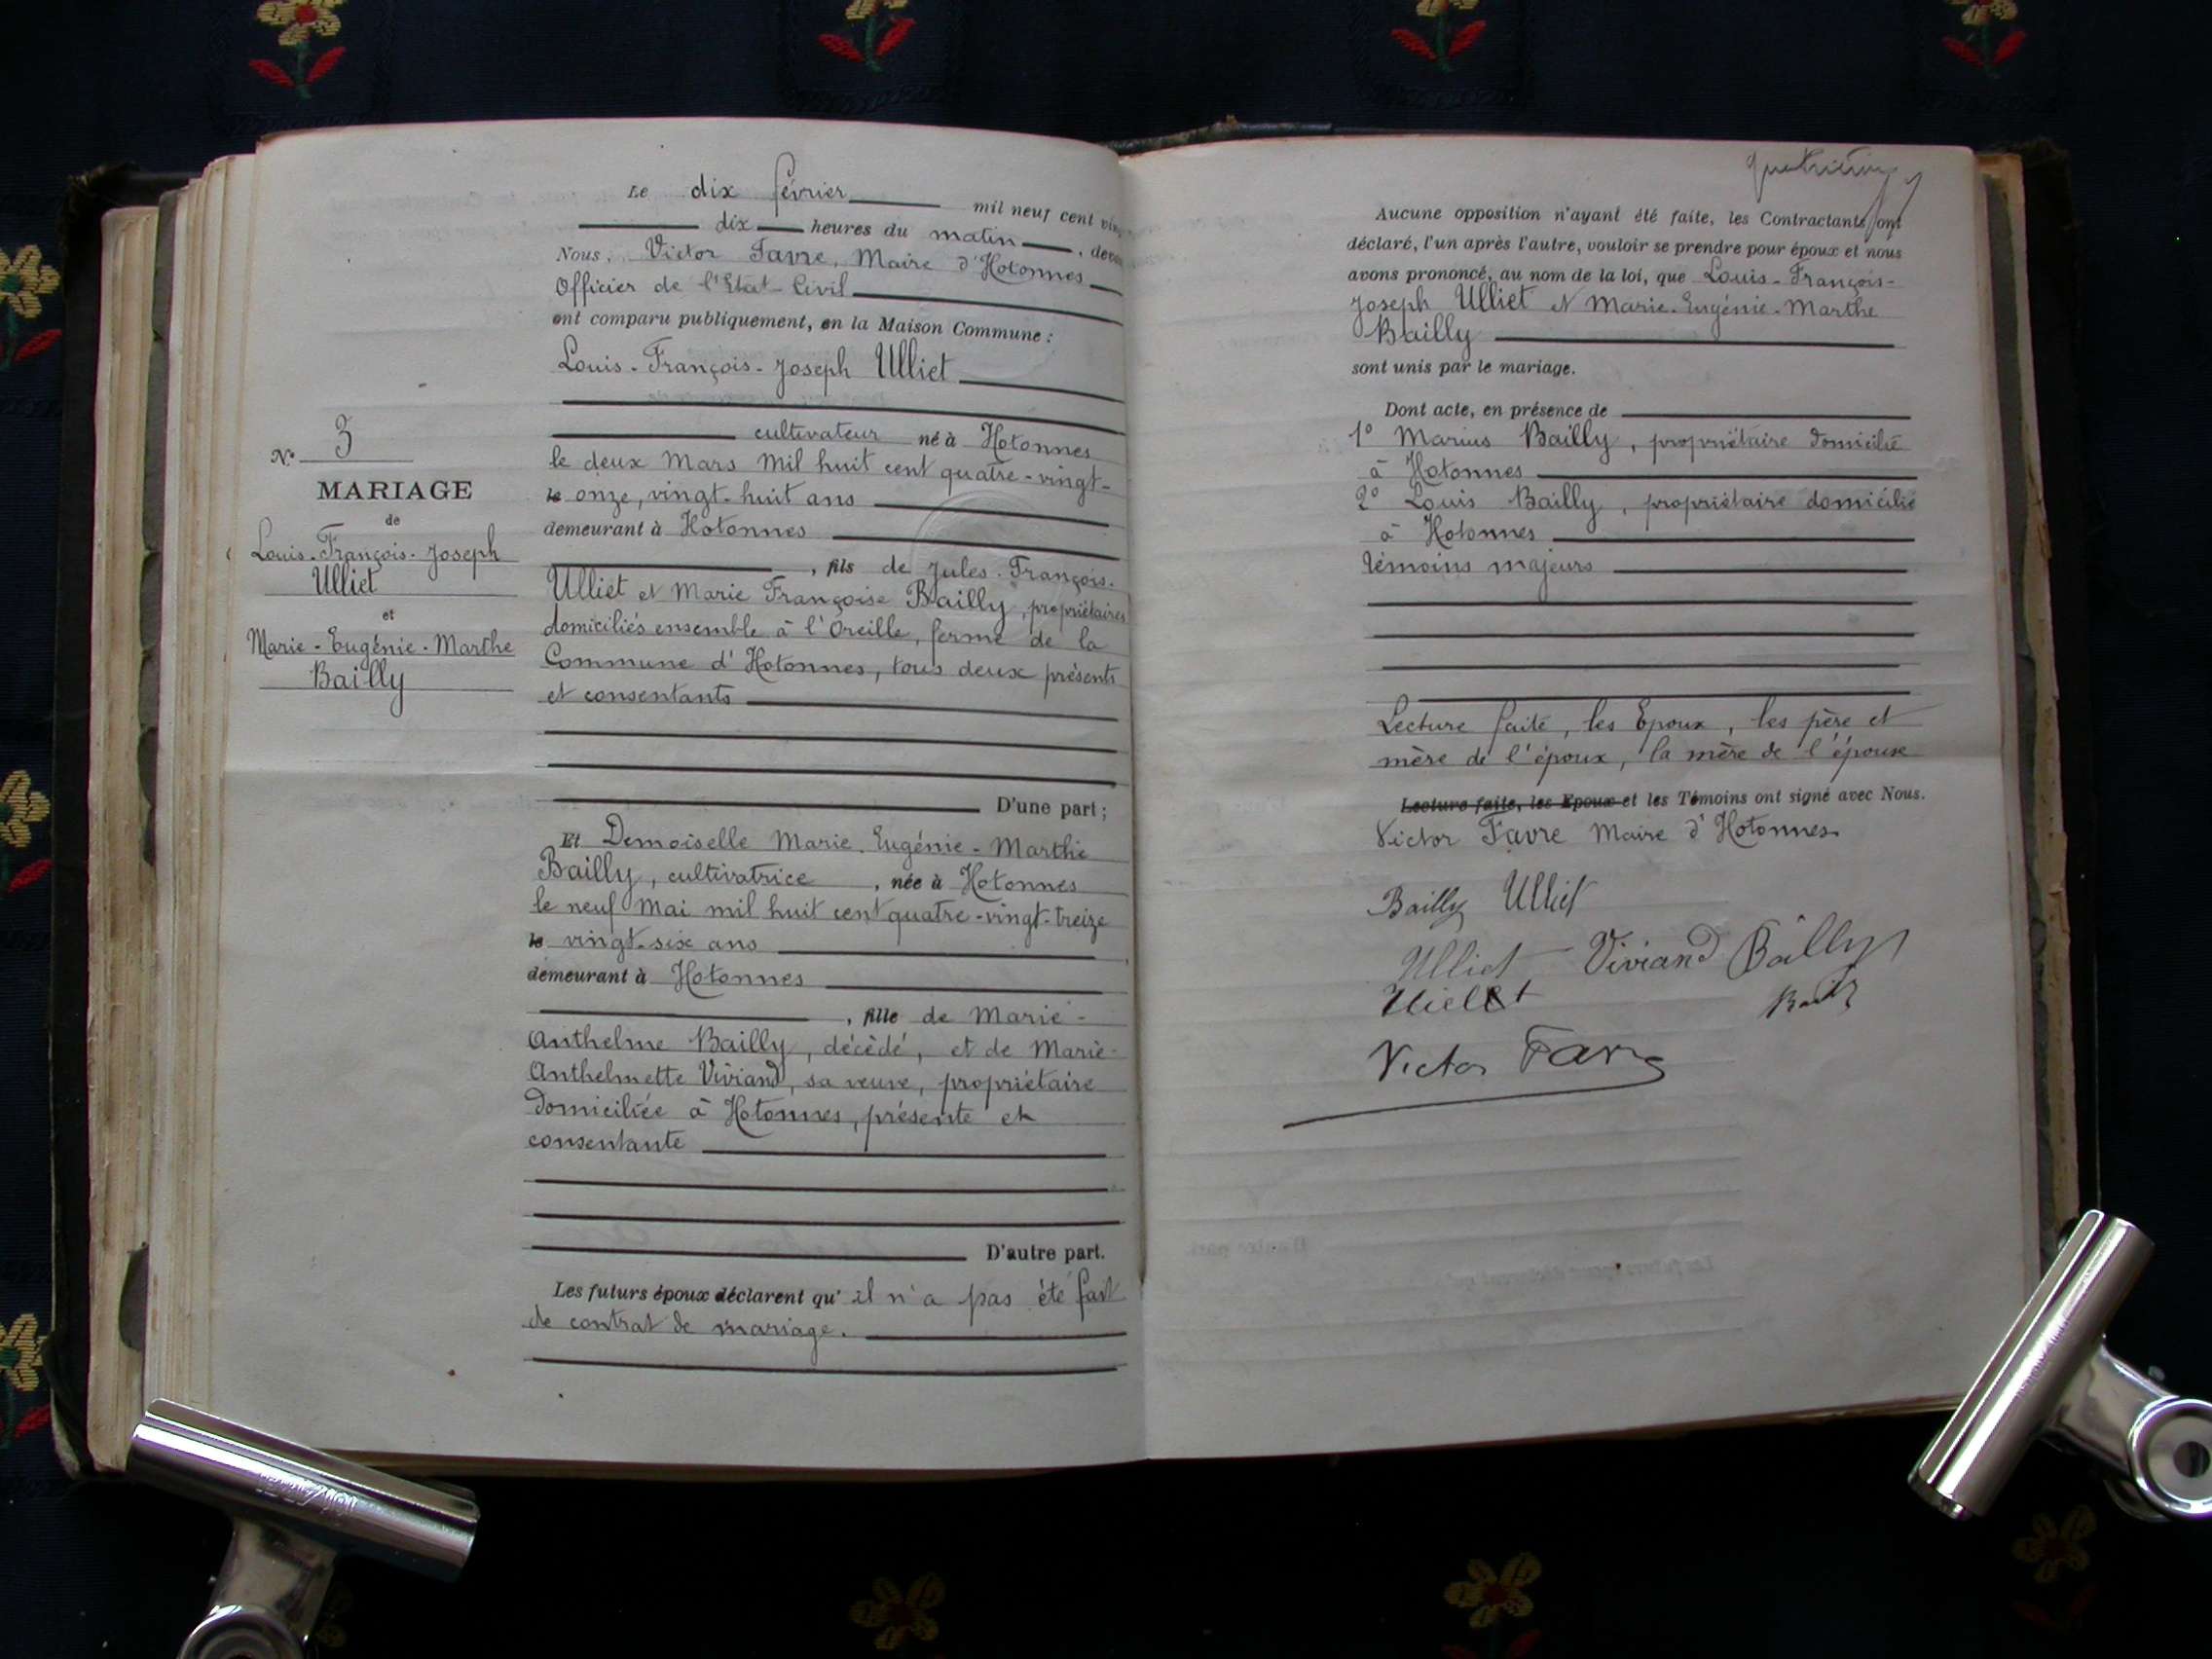 Le dix février mil neuf cent
dix heures du matin,
Nous, Victor Favre, Maire d'Hotonnes
Officier de l'Etat-Civil
ont comparu publiquement, en la Maison Commune :
Louis-François-Joseph Ulliet
cultivateur né à Hotonnes
le deux Mars mil huit cent quatre-vingt-
le onze, vingt-huit ans
demeurant à Hotonnes
, fils de Jules-François-
Ulliet et Marie Françoise Bailly, propriétaires
domiciliés ensemble à l'Oreille, ferme de la
Commune d'Hotonnes, tous deux présents
et consentants
D'une part ;
N° 3
MARIAGE
de
Louis-François-Joseph
Ulliet
et
Marie-Eugénie-Marthe
Bailly
Et Demoiselle Marie-Eugénie-Marthe
Bailly, cultivatrice, née à Hotonnes
le neuf Mai mil huit cent quatre-vingt-treize
le vingt-six ans
demeurant à Hotonnes
, fille de Marie-
Anthelme Bailly, décédé, et de Marie-
Anthelmette Viviand, sa veuve, propriétaire
domiciliée à Hotonnes, présente et
consentante
D'autre part.
Les futurs époux déclarent qu'il n'a pas été fait
de contrat de mariage.
Aucune opposition n'ayant été faite, les Contractants ont
déclaré, l'un après l'autre, vouloir se prendre pour époux et nous
avons prononcé, au nom de la loi, que Louis-François-
Joseph Ulliet et Marie-Eugénie-Marthe
Bailly
sont unis par le mariage.
Dont acte, en présence de
1° Marius Bailly, propriétaire domicilié
à Hotonnes
2° Louis Bailly, propriétaire domicilié
à Hotonnes
témoins majeurs
Lecture faite, les Epoux, les père et
mère de l'époux, la mère de l'épouse
Lecture faite, les Epoux et les Témoins ont signé avec Nous.
Victor Favre Maire d'Hotonnes
Bailly Ulliet
Ulliet Viviand Bailly
Bailly
Victor Favre